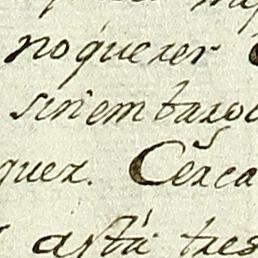 no querer
sin embarc
quez. Cerca
está tres